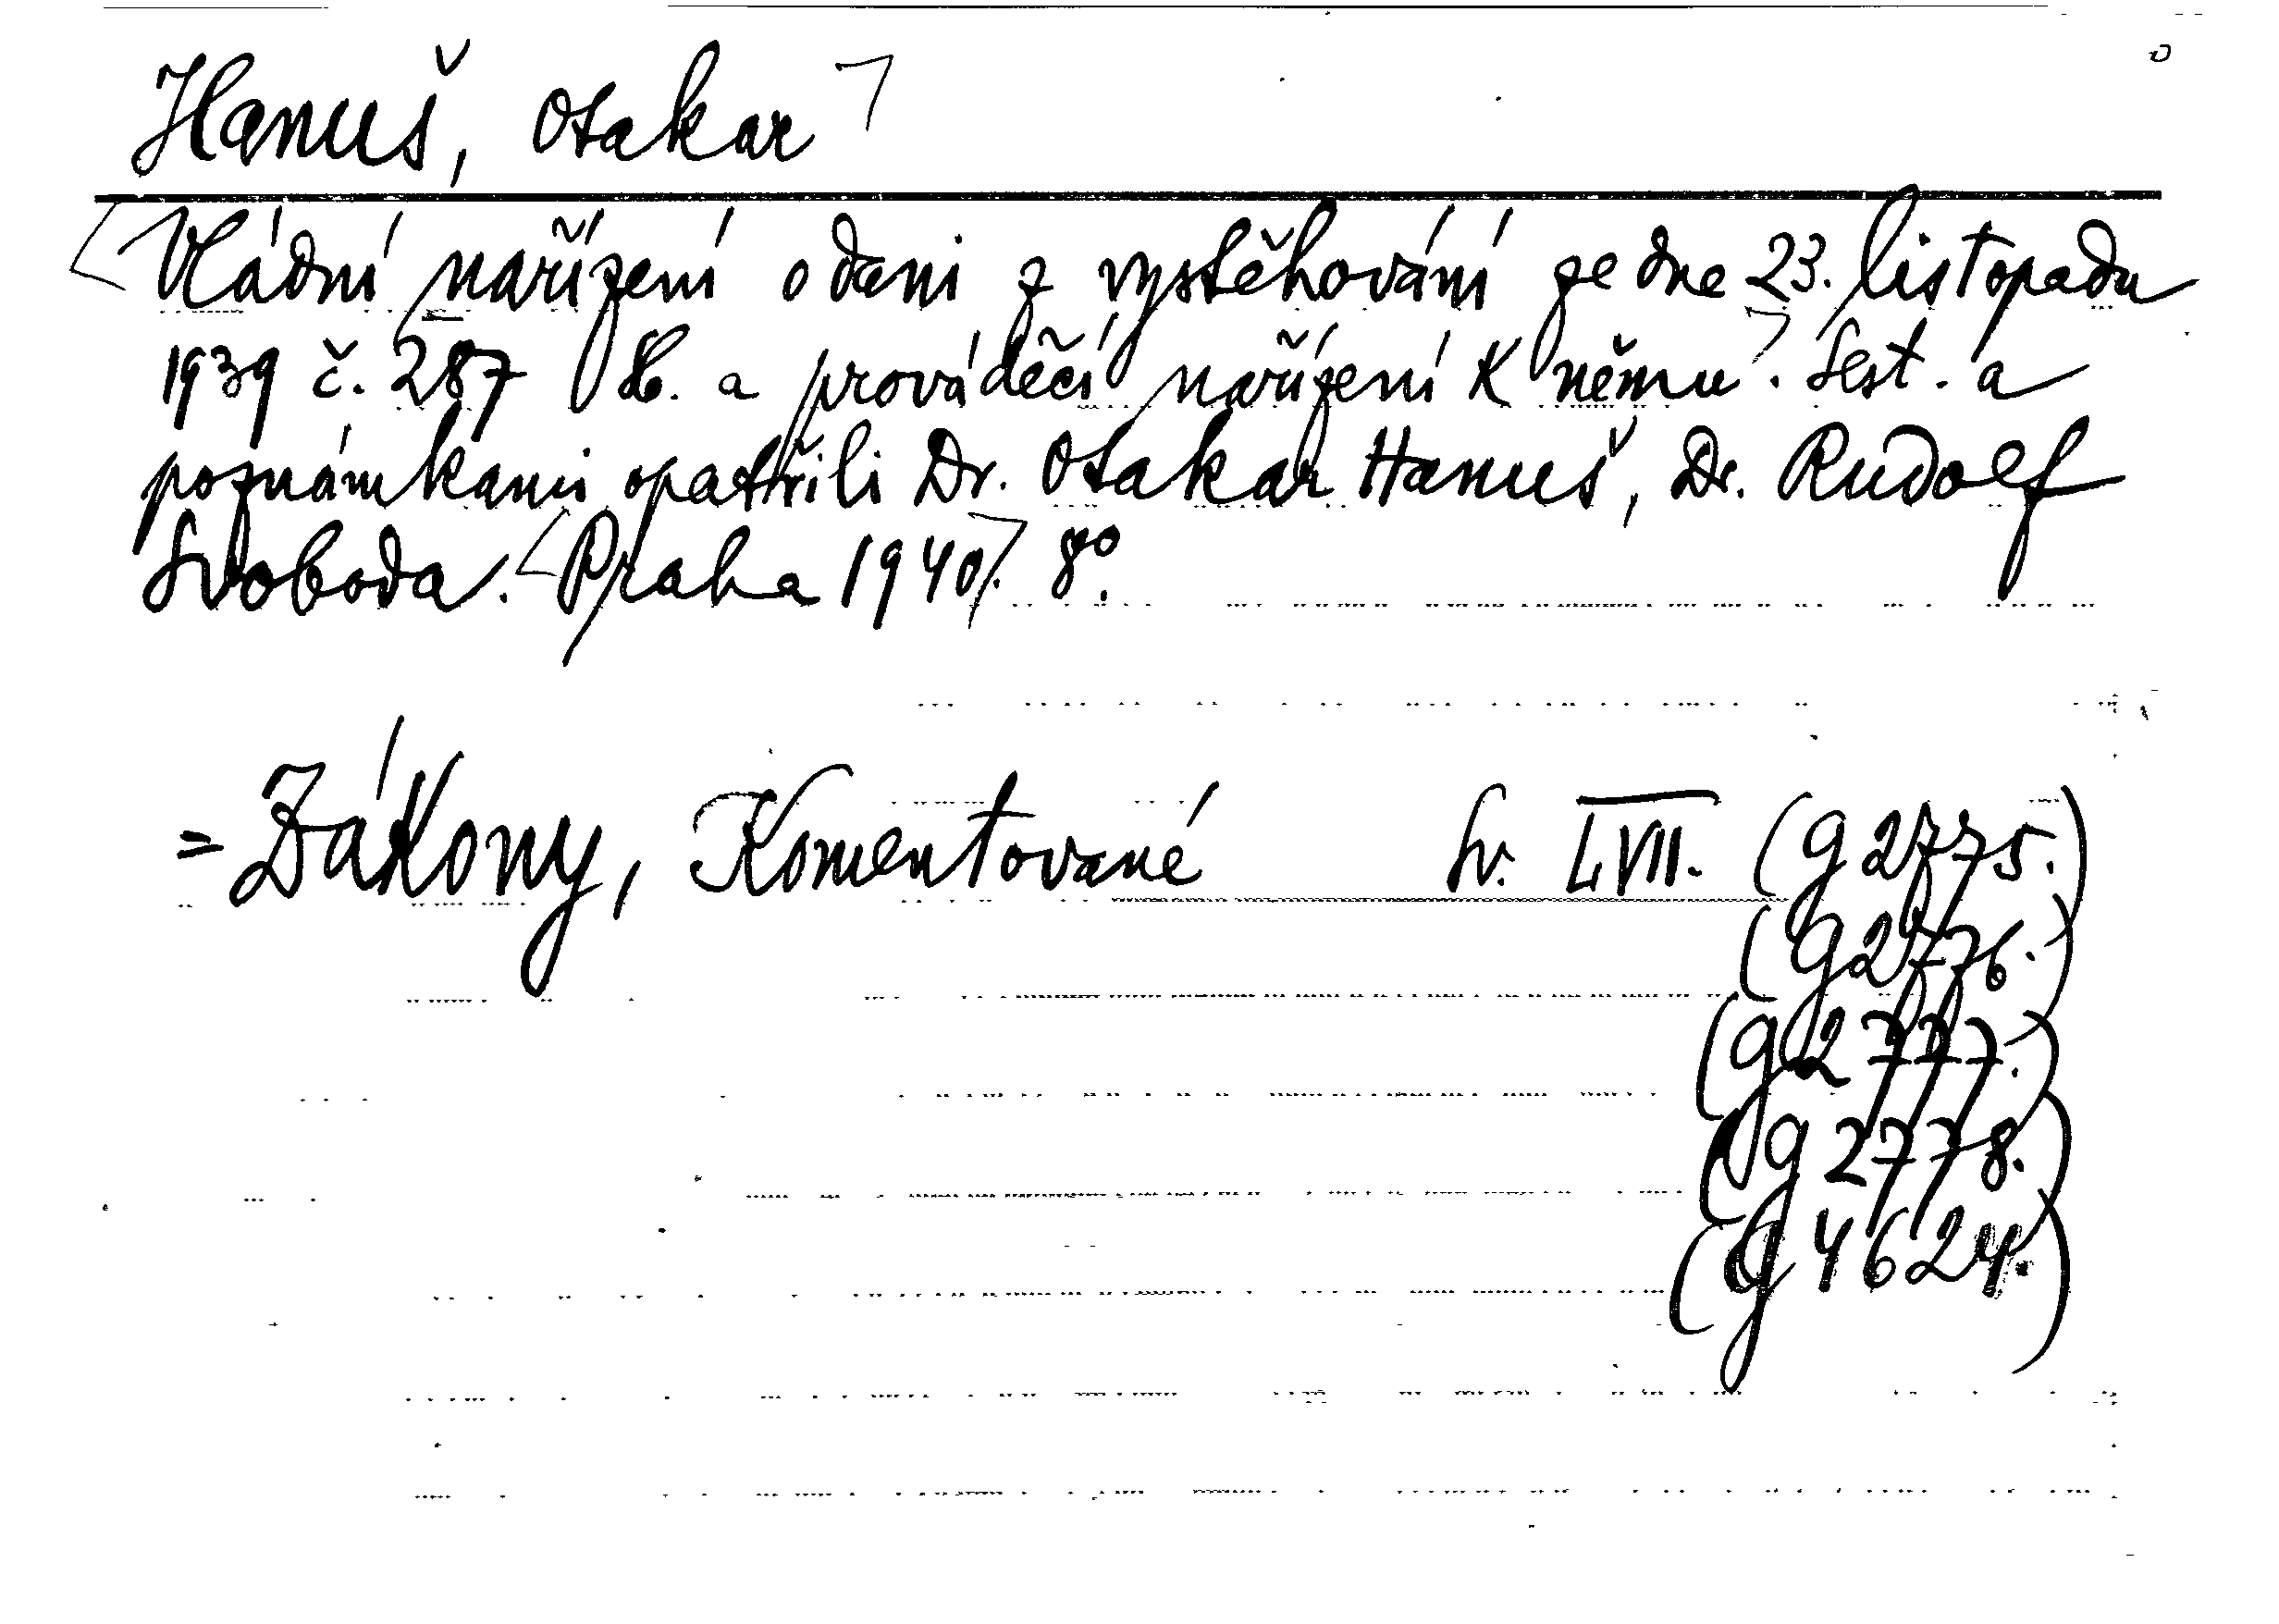 Hanuš, Otakar
Vládní nařízení o dani z vystěhování ze dne 23. listopadu
1939 č. 287 Sb. a prováděčí nařízení k němu. Sest. a
poznámkami opatřili Dr. Otakar Hanuš, Dr. Rudolf
Svoboda. Praha 1940. 8°.
= Zákony, Komentované Sv. LVII. (g 2775.)
(g 2776.)
(g 2777.)
(g 2778.)
(g 4624.)